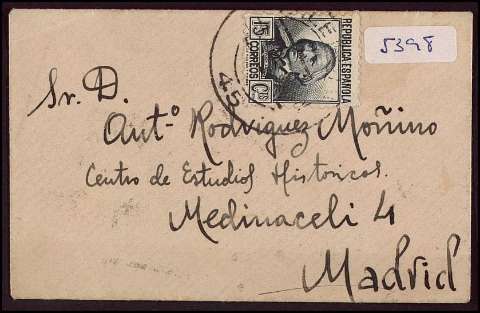 REPUBLICA ESPAÑOLA
15 CTS
CORREOS
45
5398
Sr. D.
Antº Rodriguez Moñino
Centro de Estudios Historicos.
Medinaceli 4
Madrid